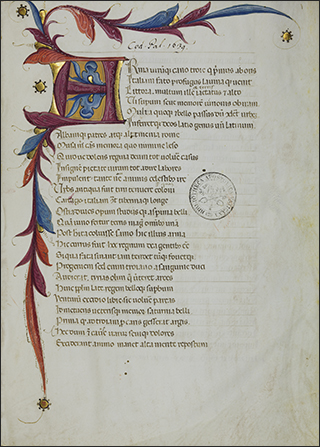 Cod. Pal.
Arma uirumq cano troie q primus ab oris
Italiam fato profugus lauina q uenit
Littora, multum ille iactatus alto
Ui superum seue memorem iunonis ob iram
Multa quoq bello passus dum urbem
Inferret q deos latio genus unde latinum
Albaniq patres atq alte menia rome
Musa michi causas memora quo numine leso
Quid ue dolens regina deum tot uoluere casus
Insignem pietate uirum tot adire labores
Impulerit tante ne animis celestibus ire
Urbs antiqua fuit tirii tenuere coloni
Cartago italiam contra tiberina q longe
Ostia diues opum studiis q asperrima belli
Quam iuno fertur terris magis omnibus unam
Post habita coluisse samo hic illius arma
Hic currus fuit hoc regnum dea gentibus esse
Si qua fata sinant iam tum tendit q fouet q
Progeniem sed enim troiano a sanguine duci
Audierat, tirias olim que uerteret arces
Hinc populum late regem belloq superbum
Uenturum excidio libie sic uoluere parcas
Id metuens ueteris q memor saturnia belli
Prima quod ad troiam pro caris gesserat argis
Necdum etiam cause irarum seui q dolores
Exciderant animo manet alta mente repostum